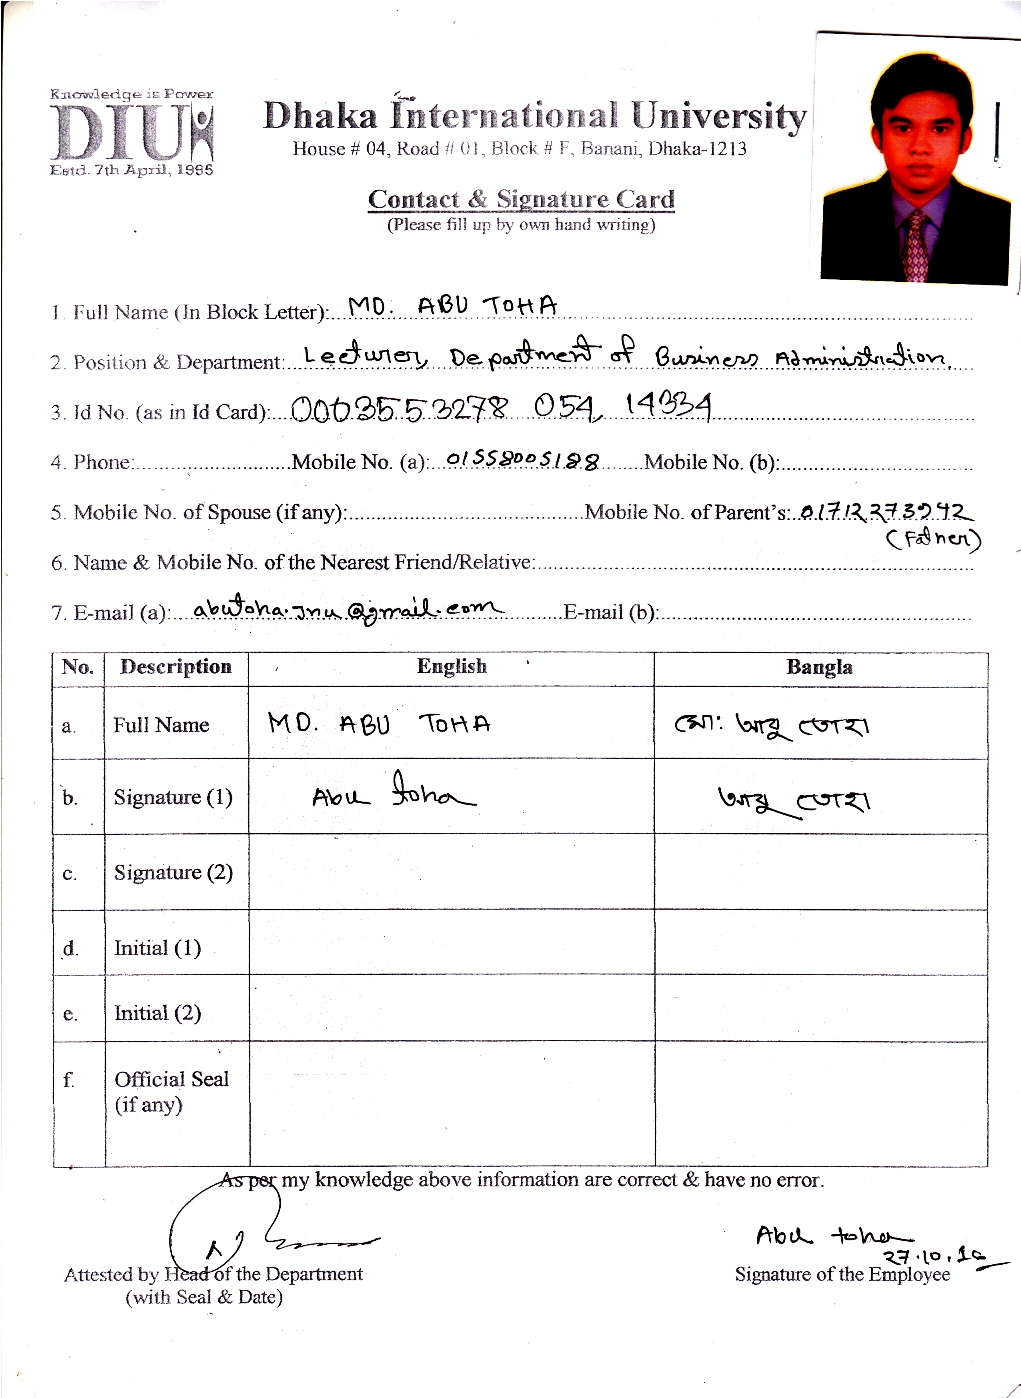 Knowledge is Power
DIU
Estd. 7th April, 1995
Dhaka International University
House # 04, Road # 01, Block # F, Banani, Dhaka-1213
Contact & Signature Card
(Please fill up by own hand writing)
1. Full Name (In Block Letter): MD. ABU TOHA
2. Position & Department: Lecturer, Department of Business Administration.
3. Id No. (as in Id Card): 0003553278 054, 14334
4. Phone: Mobile No. (a): 01558005188 Mobile No. (b):
5. Mobile No. of Spouse (if any): Mobile No. of Parent's: 01712273942
(Father)
6. Name & Mobile No. of the Nearest Friend/Relative:
7. E-mail (a): abutoha.jnu@gmail.com E-mail (b):
No. Description English Bangla
a. Full Name MD. ABU TOHA মো: আবু তোহা
b. Signature (1) Abu toha আবু তোহা
c. Signature (2)
d. Initial (1)
e. Initial (2)
f. Official Seal
(if any)
As per my knowledge above information are correct & have no error.
Abu toha
27.10.16
Attested by Head of the Department Signature of the Employee
(with Seal & Date)